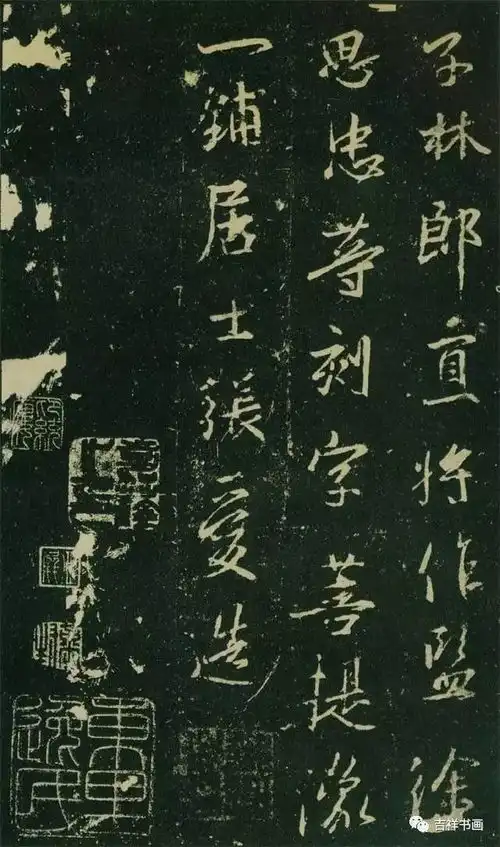 文林郎直将作監徐
思忠等刻字菩提像
一鋪居士張愛造
吉祥书画